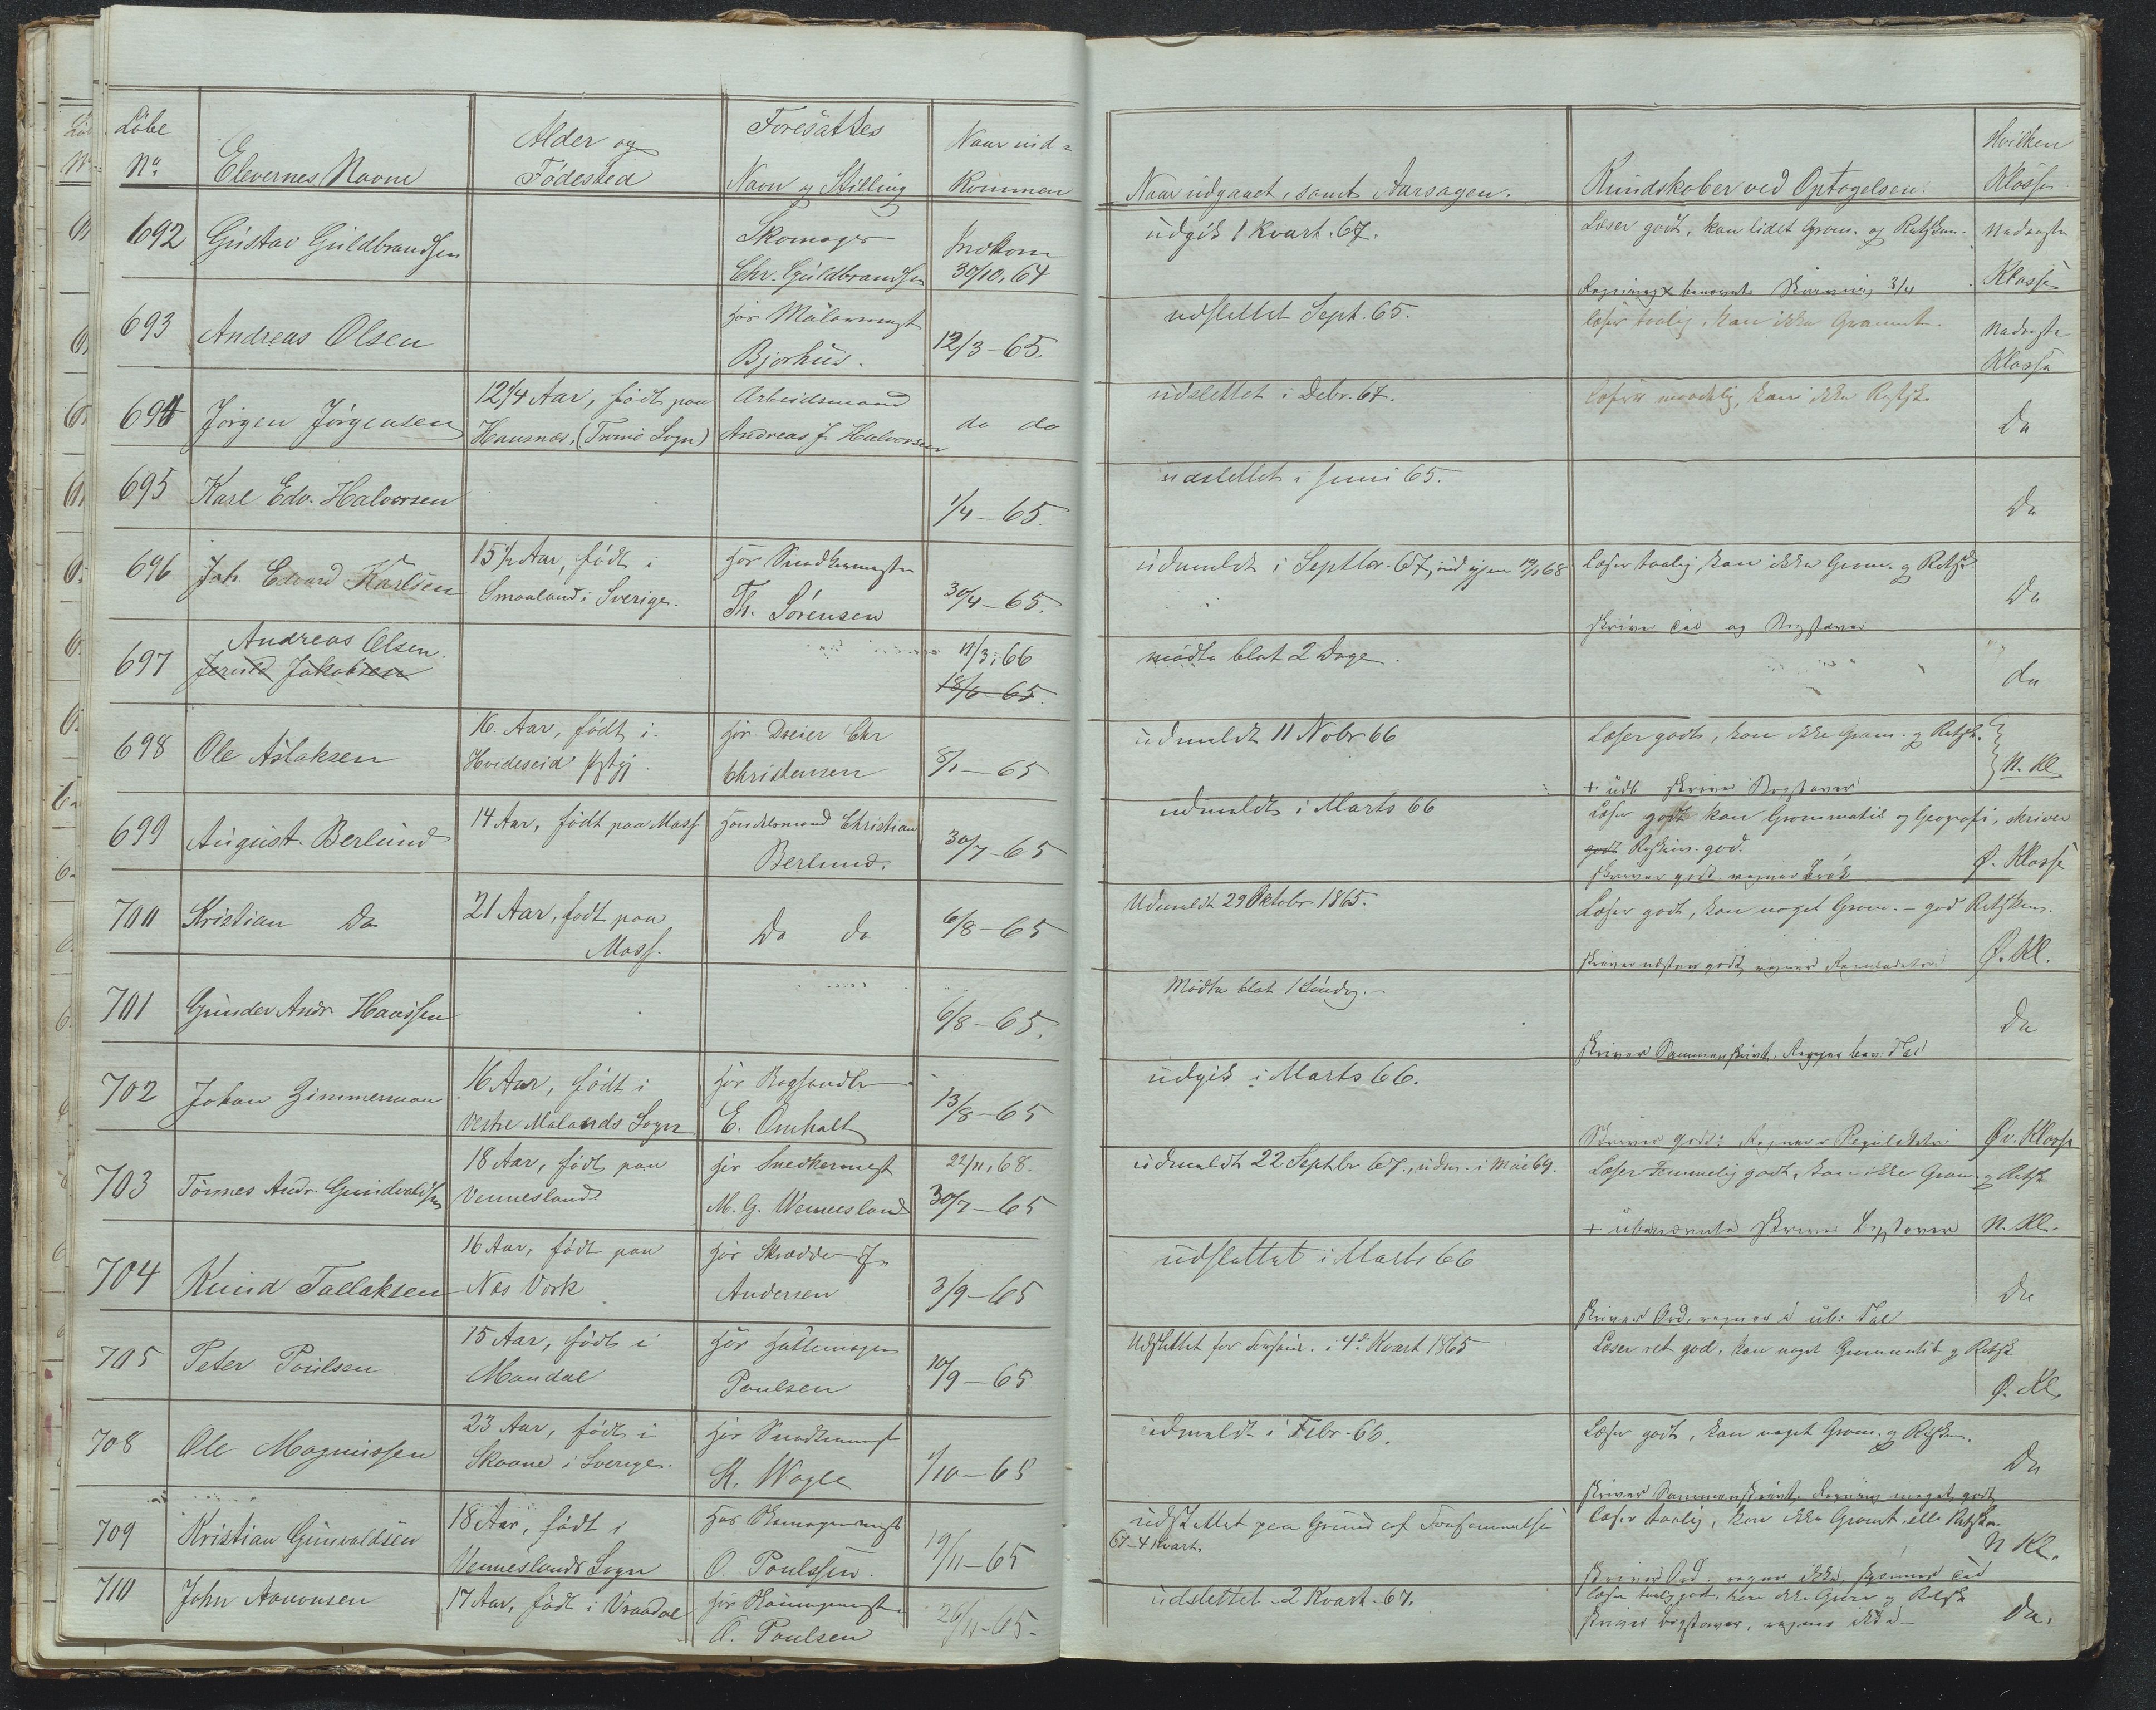 Löbe
No.
Elevernes Navne
Alder og
Födested
Foresattes
Navn og Stilling
Naar ind-
kommen
Naar udgaaet, samt Aarsagen.
Kundskaber ved Optagelsen.
Hvilken
Klasse.
692 Gustav Guldbrandsen
Skomager
Chr. Guldbrandsen
Indkom
30/10.64
udgik 1 Kvart. 67.
Læser godt, kan lidet Gram. og Retskr.
Nederste
Klasse
693 Andreas Olsen
hos Malermest
Bjorhus.
12/3-65.
udslettet Sept. 65.
læser taalig, kan ikke Gramat.
Nederste
Klasse
694 Jørgen Jørgensen
12 1/4 Aar, født paa
Hausnæs, (Tromö Sogn)
Arbeidsmand
Andreas J. Halvorsen
do do
udslettet i Debr. 67.
læser maadelig, kan ikke Retsk.
Do
695 Karl Edv. Halvorsen
1/4-65.
udslettet i Juni 65.
Do
696 Joh. Edvard Karlsen
15 1/2 Aar, født i
Smaaland i Sverige.
hos Snedkermester
Th. Sörensen
30/4-65.
udmeldt i Septbr. 67, ind igjen 19/1 68
Læser taalig, kan ikke Gram. og Retsk.
skriver og Bogstaver
Do
697 Andreas Olsen.
Jakobsen
11/3.66
18/6-65.
mødte blot 2 Dage.
do
698 Ole Aslaksen
16. Aar, født i
Hvideseid Prstgj.
hos Dreier Chr
Christensen
8/1-65
udmeldt 11 Nobr 66
Læser godt, kan ikke Gram. og Retsk.
skriver Bogstaver
N. Kl
699 August. Berlund
14 Aar, født paa Moss
Handelsmand Christian
Berlund.
30/7-65
udmeldt i Marts 66
Læser godt kan Grammatik og Geografi, skriver
godt Retskriv. god.
skriver godt regner brøk
Ø. Klasse
700 Kristian Do
21 Aar, født paa
Moss.
Do do
6/8-65
Udmeldt 29 Oktobr 1865.
Læser godt, kan noget Gram. - god Retskriv.
skriver næsten godt, regner
Ø. Kl.
701 Gunder Andr. Hansen
6/8-65.
Mødte blot 1 Søndag.-
skriver Sammenskrivt. Regner ben. Tal
Do
702 Johan Zimmerman
16 Aar, født i
Vestre Molands Sogn
hos Boghandler
E. Omholt
13/8-65
udgik i Marts 66.
Skriver godt: Regner
Øv. Klasse
703 Tønnes Andr. Gundvaldsen
18 Aar, født paa
Vennesland
hos Snedkermest
M. G. Wennesland
22/11.68.
30/7-65
udmeldt 22 Septbr 67., udm. i Mai 69.
Læser temmelig godt, kan ikke Gram. og Retsk
+ ubenævnte skriver bogstaver
N. Kl.
704 Knud Tallaksen
16 Aar, født paa
Næs Værk
hos Skrædder J.
Andersen
3/9-65
udslettet i Marts 66
skriver Ord, regner i ub: Tal
Do
705 Peter Poulsen
15 Aar, født i
Mandal
hos
Poulsen
10/9-65
Udslettet for Forsøm. i 4de Kvart 1865
Læser ret god, kan noget Grammatik og Retsk
Ø. Kl.
708 Ole Magnussen
23 Aar, født i
Skaane i Sverige.
hos Snedkermest
K. Wogle
1/10-65
udmeldt i Febr. 66.
Læser godt, kan noget Gram. og Retskr.
skriver Sammenskrivt. Regning meget godt
Do
709 Kristian Gunvaldsen
18 Aar, født i
Venneslands Sogn
hos Skomagermest
O. Poulssen.
19/11-65
udslettet paa Grund af Forsømmelse
67-4 Kvart.
læser taalig, kan ikke Gramt. eller Retskr.
skriver Ord, regner ikke,
N Kl.
710 John Aanonsen
17 Aar, født i Vraadal
hos Skomagermester
O. Poulsen
26/11-65.
udslettet - 2 Kvart - 67.
læser taalig godt, kan ikke Gram og Retsk
skriver bogstaver, regner ikke -
Do.